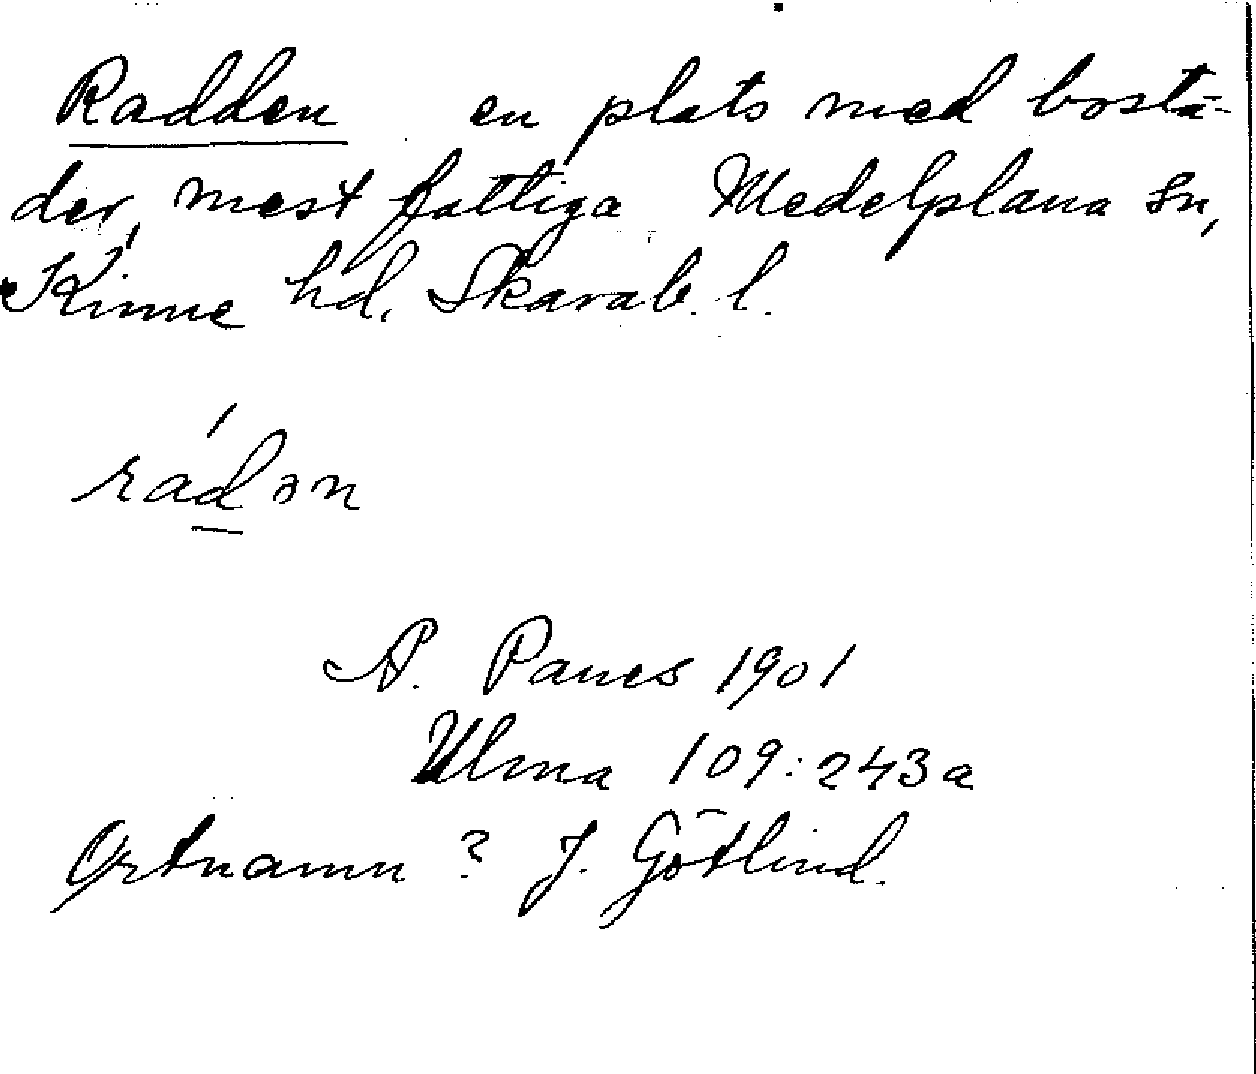 Radden en plats med bostä-
der, mest fattiga Medelplana sn,
Kinne hd. Skarab. l.
rádən
A. Panes 1901
Ulma 109:243a
Ortnamn? J. Götlind.